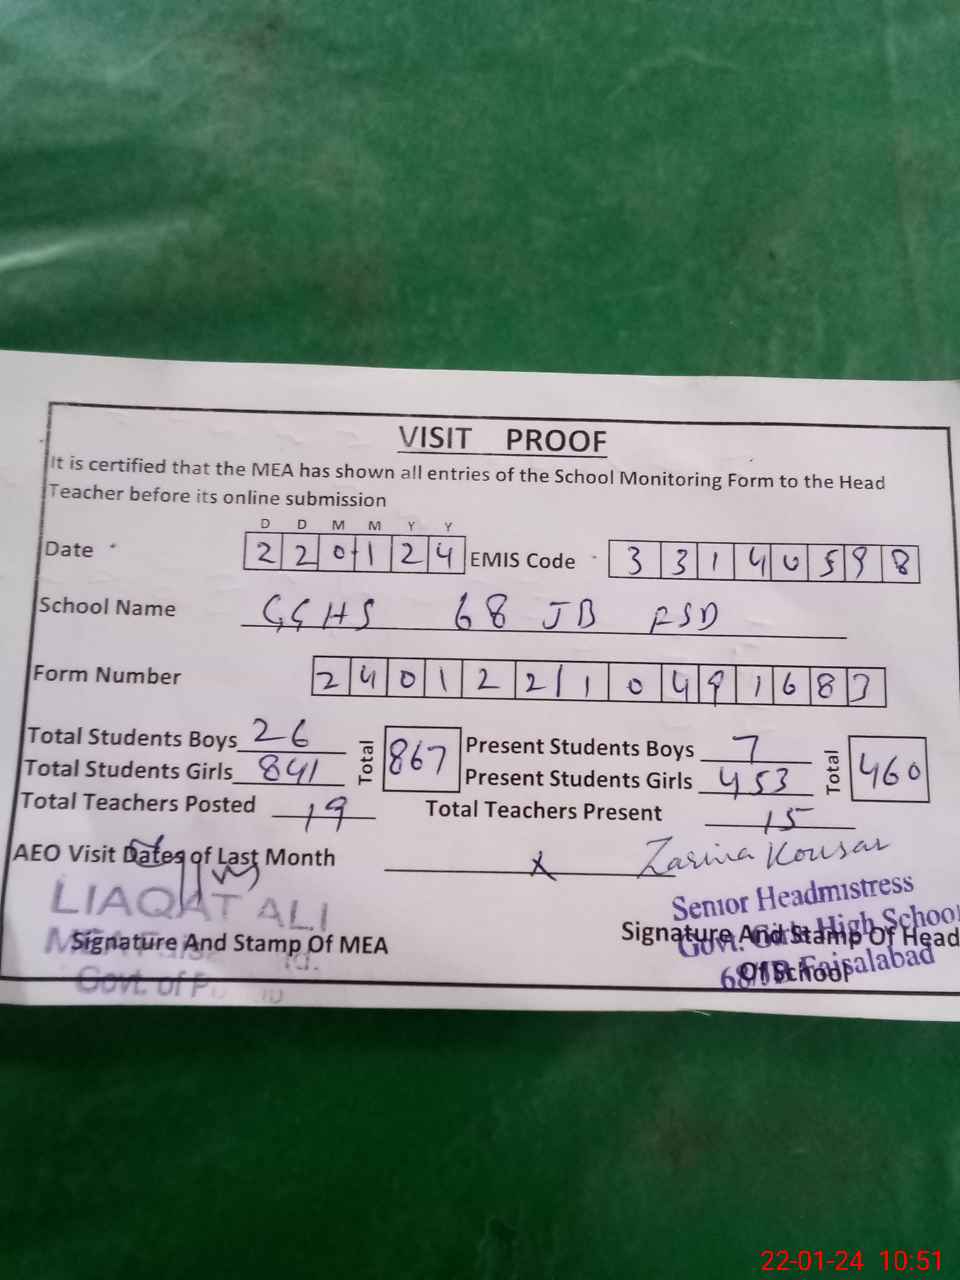 VISIT PROOF
It is certified that the MEA has shown all entries of the School Monitoring Form to the Head
Teacher before its online submission
D D M M Y Y
Date 2 2 0 1 2 4 EMIS Code 3 3 1 4 0 5 9 8
School Name GGHS 68 JB FSD
Form Number 2 4 0 1 2 2 1 1 0 4 9 1 6 8 3
Total Students Boys 26 Total 867 Present Students Boys 7 Total 460
Total Students Girls 841 Present Students Girls 453
Total Teachers Posted 19 Total Teachers Present 15
AEO Visit Dates of Last Month x Zarina Kousar
LIAQAT ALI
Senior Headmistress
MEA
Govt. Girls High School
Signature And Stamp Of MEA
Signature And Stamp Of Head
Of School
Govt. of
68/JB Faisalabad
22-01-24 10:51